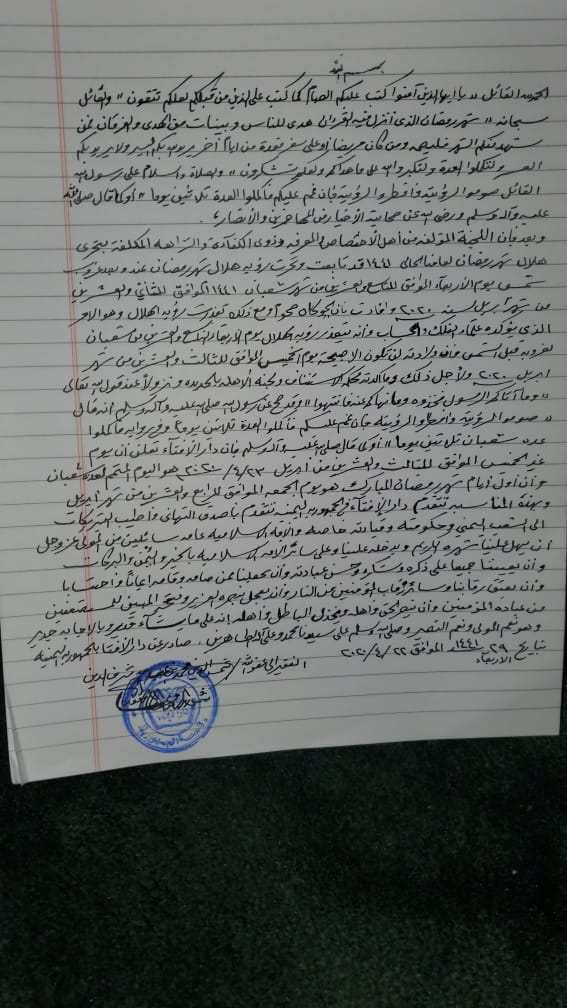 بسم الله
الحمد لله القائل «يا ايها الذين آمنوا كتب عليكم الصيام كما كتب على الذين من قبلكم لعلكم تتقون» والقائل
سبحانه «شهر رمضان الذي أنزل فيه القرآن هدى للناس وبينات من الهدى والفرقان فمن
شهد منكم الشهر فليصمه ومن كان مريضا أو على سفر فعدة من أيام أخر يريد الله بكم اليسر ولا يريد بكم
العسر ولتكملوا العدة ولتكبروا الله على ما هداكم ولعلكم تشكرون» والصلاة والسلام على رسول الله
القائل صوموا لرؤيته وافطروا لرؤيته فإن غم عليكم فأكملوا العدة ثلاثين يوما» أو كما قال صلى الله
عليه وآله وسلم ورضي الله عن صحابته الأخيار من المهاجرين والأنصار،
وبعد فان اللجنة المؤلفة من أهل الاختصاص والمعرفة وذوي الكفآءة والنزاهه المكلفة بتحري
هلال شهر رمضان لعامنا الحالي ١٤٤١ قد تابعت وتحرت رؤية هلال شهر رمضان عند وبعد غروب
شمس يوم الأربعاء الموافق للتاسع والعشرين من شهر شعبان ١٤٤١ الموافق للثاني والعشرين
من شهر أبريل لسنة ٢٠٢٠ وافادت بأن الجو كان صحواً ومع ذلك تعذرت رؤية الهلال وهو الأمر
الذي يؤكده علماء الفلك والحساب وأنه يتعذر رؤية الهلال يوم الأربعاء التاسع والعشرين من شعبان
لغروبه قبل الشمس وأن ولادته لن تكون الا صبيحة يوم الخميس الموافق للثالث والعشرين من شهر
ابريل ٢٠٢٠ ولأجل ذلك وما أكدته محكمة استئناف ولجنة الأهله بالحديده ونزولاً عند قول الله تعالى
«وما آتاكم الرسول فخذوه وما نهاكم عنه فانتهوا» وقد صح عن رسول الله صلى الله عليه وآله وسلم انه قال
«صوموا لرؤيته وافطروا لرؤيته فإن غم عليكم فأكملوا العدة ثلاثين يوماً» وفي رواية فأكملوا
عدة شعبان ثلاثين يوما» أو كما قال صلى الله عليه وآله وسلم فإن دار الإفتآء تعلن أن يوم
غدٍ الخميس الموافق للثالث والعشرين من أبريل ٢٠٢٠/٤/٢٣ هو اليوم المتمم لعدة شعبان
وأن أول أيام شهر رمضان المبارك هو يوم الجمعه الموافق للرابع والعشرين من شهر ابريل
وبهذه المناسبه تتقدم دار الإفتآء في الجمهوريه اليمنيه بأصدق التهاني وأطيب التبريكات
الى الشعب اليمني وحكومته وقيادته خاصه والأمه الاسلاميه عامه سائلين من المولى عز وجل
أن يهل علينا شهره الكريم ويدخله علينا وعلى سائر الأمه الاسلاميه بالخير واليمن والبركات
وأن يعيننا جميعا على ذكره وشكره وحسن عبادته وأن يجعلنا ممن صامه وقامه ايماناً واحتسابا
وأن يعتق رقابنا وسائر رقاب المؤمنين من النار وأن يعجل بنصره العزيز وفتحه المبين للمستضعفين
من عباده المؤمنين وأن ينصر الحق وأهله ويخذل الباطل وأهله انه على ما يشآء قدير وبالإجابه جدير
وهو نعم المولى ونعم النصير وصلى الله وسلم على سيدنا محمد وعلى آله الطاهرين. صادر عن دار الافتآء بالجمهوريه اليمنيه
بتاريخ ٢٩ ١٤٤١ الموافق ٢٠٢٠/٤/٢٢
الأربعاء
الفقير الى عفو الله شمس الدين محمد شرف الدين